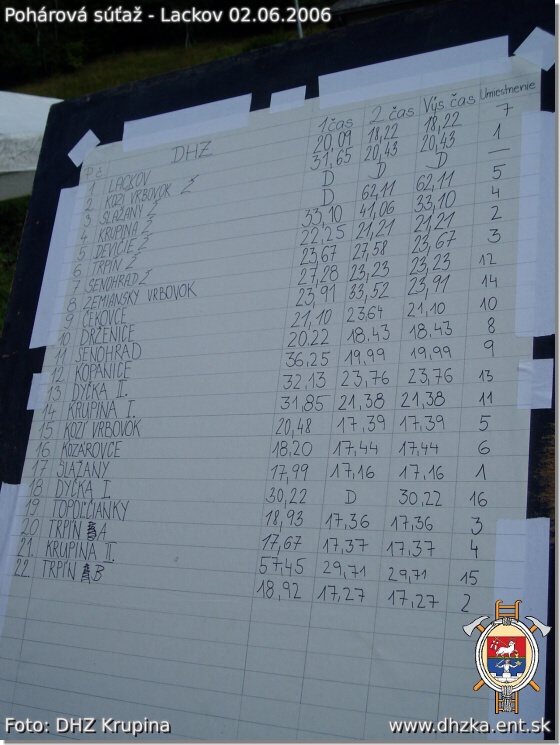 Pohárová súťaž - Lackov 02.06.2006
P.č. DHZ 1 čas 2 čas Výs. čas Umiestnenie
1 LACKOV 20,09 18,22 18,22 7
2 KOZI VRBOVOK Ž 31,65 20,43 20,43 1
3 SLAŽANY Ž D D D —
4 KRUPINA Ž D 62,11 62,11 5
5 DEVIČIE Ž 33,10 41,06 33,10 4
6 TRPÍN Ž 22,25 21,21 21,21 2
7 SENOHRAD Ž 23,67 27,58 23,67 3
8 ZEMIANSKY VRBOVOK 27,28 23,23 23,23 12
9 ČEKOVCE 23,91 33,52 23,91 14
10 DRŽENICE 21,10 23,64 21,10 10
11 SENOHRAD 20,22 18,43 18,43 8
12 KOPANICE 36,25 19,99 19,99 9
13 DYČKA II. 32,13 23,76 23,76 13
14 KRUPINA I. 31,85 21,38 21,38 11
15 KOZÍ VRBOVOK 20,48 17,39 17,39 5
16 KOZÁROVCE 18,20 17,44 17,44 6
17 SLAŽANY 17,99 17,16 17,16 1
18 DYČKA I. 30,22 D 30,22 16
19 TOPOĽČIANKY 18,93 17,36 17,36 3
20 TRPÍN A 17,67 17,37 17,37 4
21. KRUPINA II. 57,45 29,71 29,71 15
22. TRPÍN B 18,92 17,27 17,27 2
Foto: DHZ Krupina
www.dhzka.ent.sk